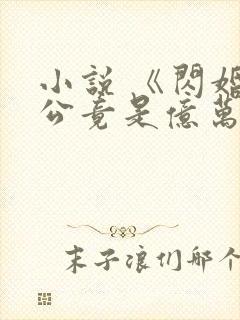 小説《閃婚
公竟是億萬
末子浪们那个